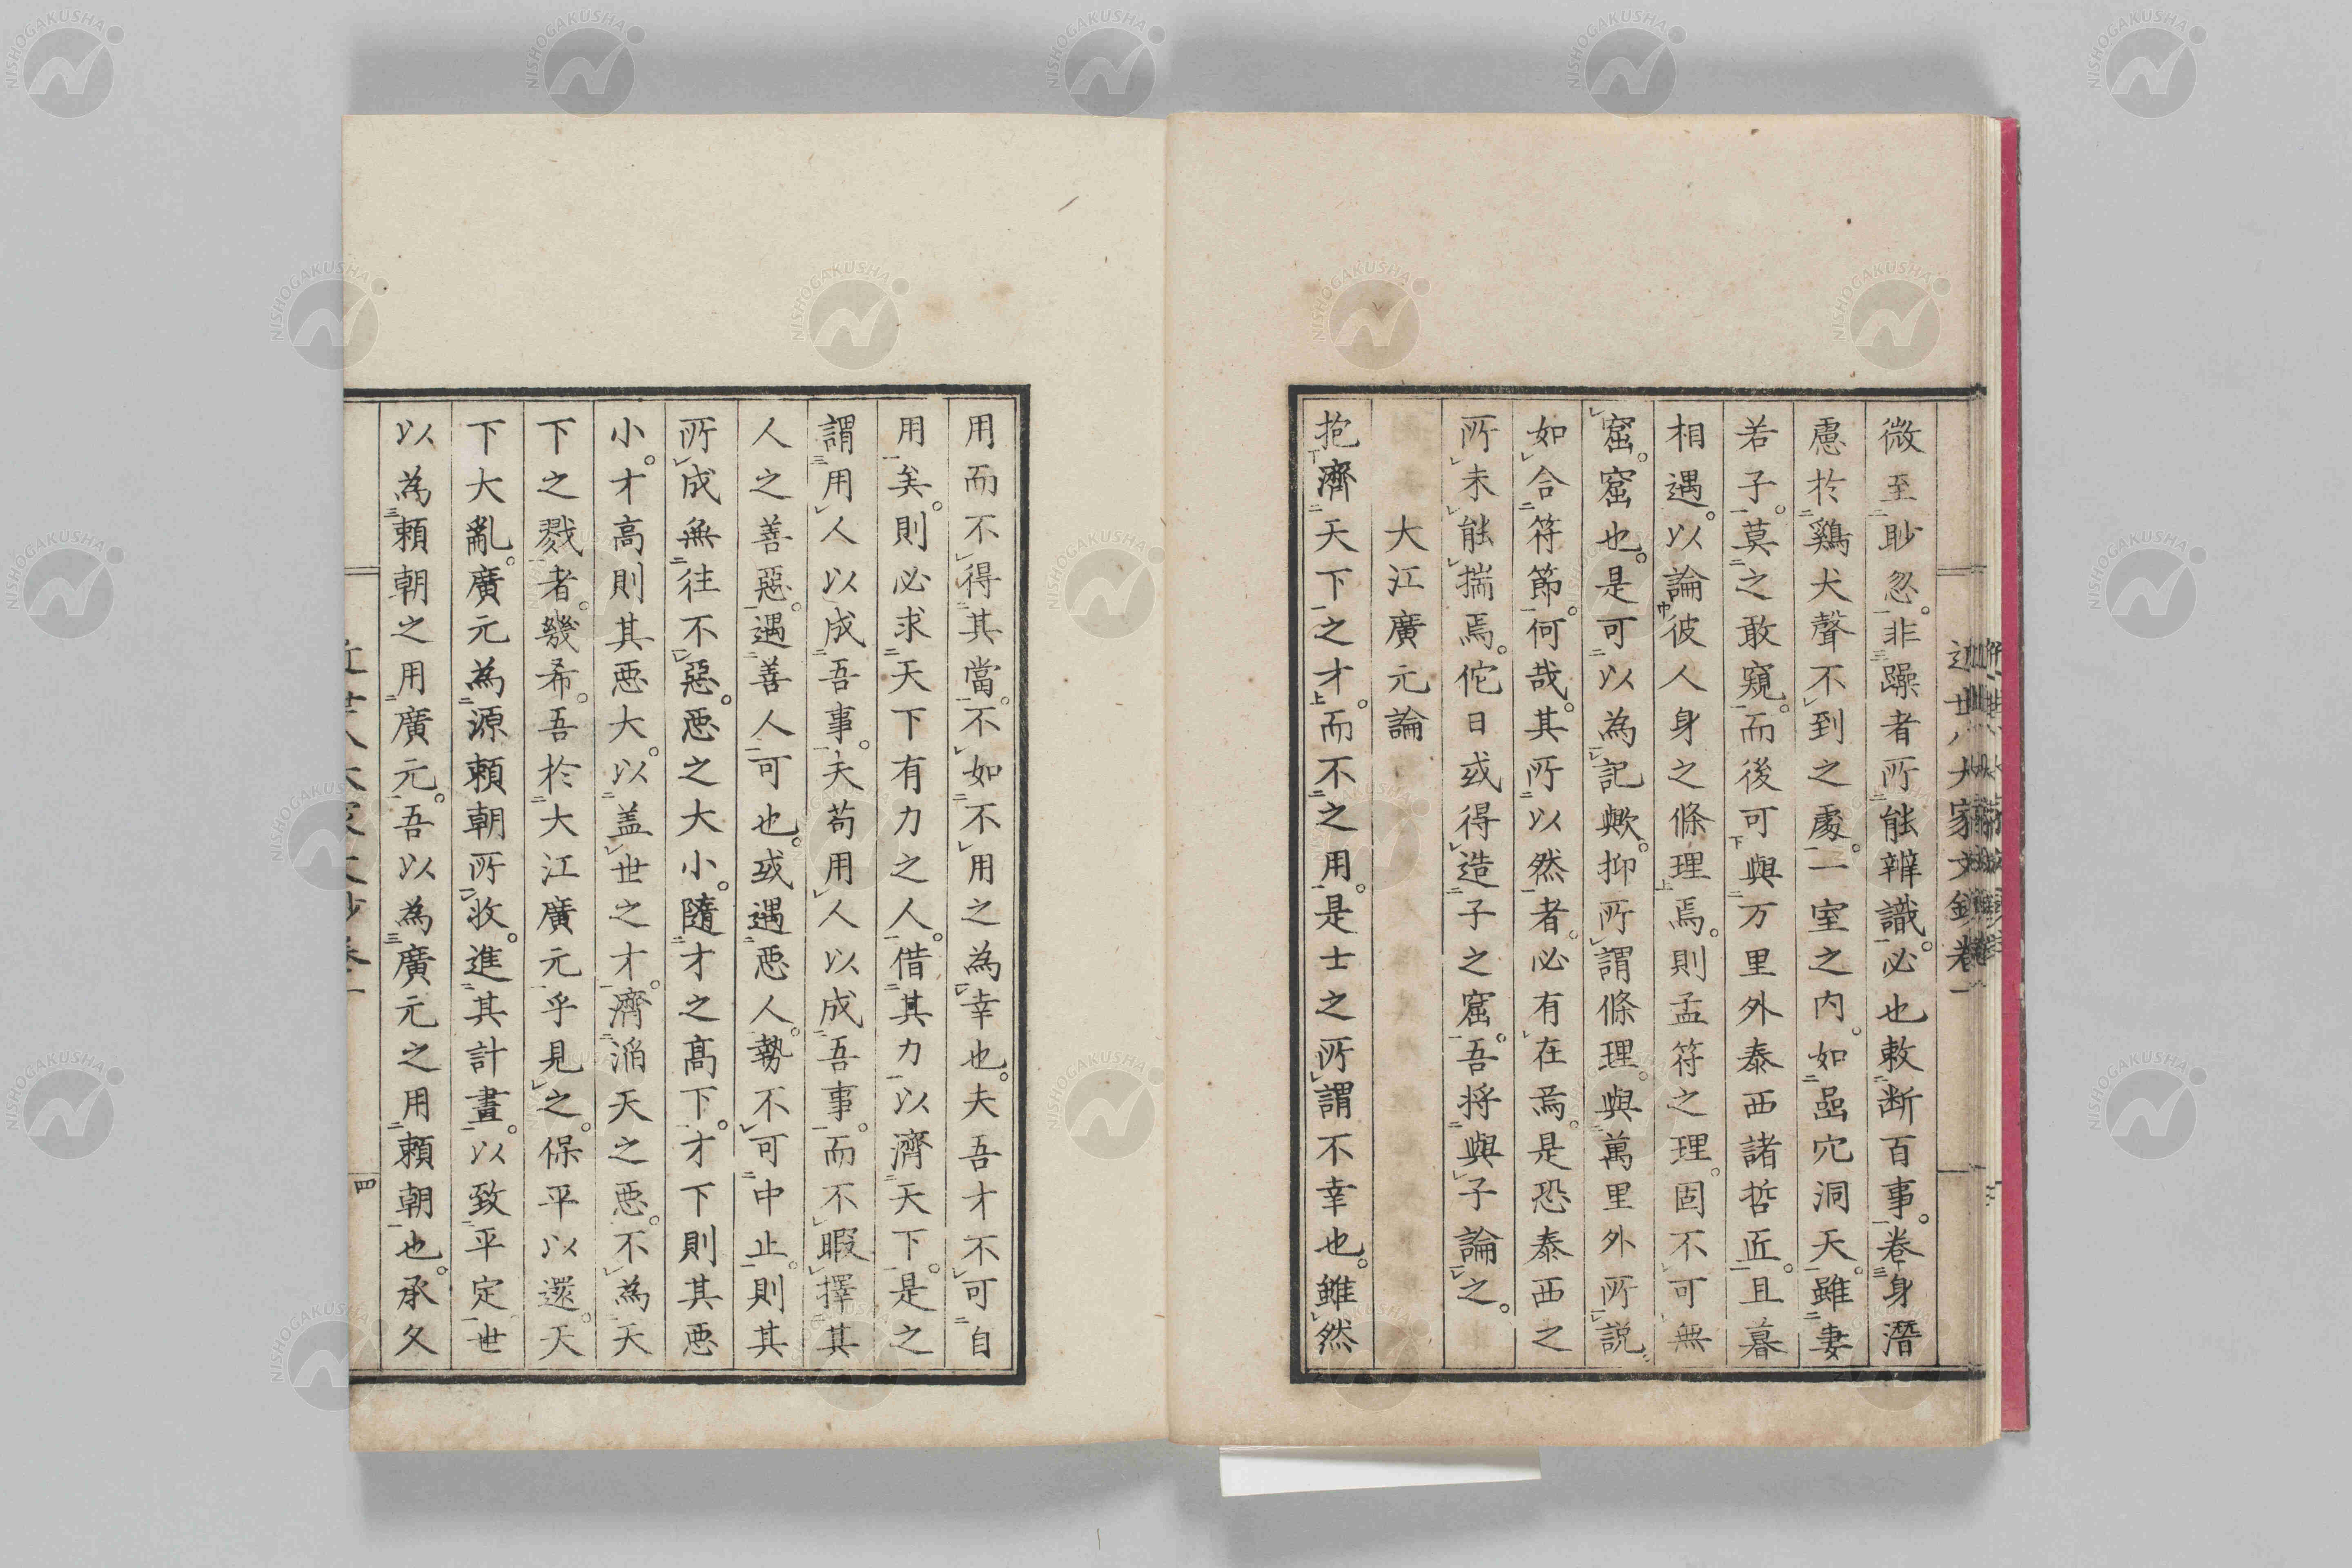 微至眇忽。非躁者所能辨識。必也敕断百事。卷身潛
慮於鷄犬聲不到之處。一室之内。如蝨穴洞天。雖妻
若子。莫之敢窺。而後可與万里外泰西諸哲匠。且暮
相遇。以論彼人身之條理焉。則孟符之理。固不可無
窟。窟也。是可以為記歟。抑所謂條理。與萬里外所説
如合符節。何哉。其所以然者。必有在焉。是恐泰西之
所未能揣焉。佗日或得造子之窟。吾将與子論之。
大江廣元論
抱濟天下之才。而不之用。是士之所謂不幸也。雖然
近世八大家文鈔卷一
用而不得其當。不如不用之為幸也。夫吾才不可自
用矣。則必求天下有力之人。借其力以濟天下。是之
謂用人以成吾事。夫苟用人以成吾事。而不暇擇其
人之善惡。遇善人可也。或遇悪人。勢不可中止。則其
所成無往不惡。悪之大小。隨才之高下。才下則其悪
小。才高則其悪大。以盖世之才。濟滔天之悪。不為天
下之戮者。幾希。吾於大江廣元乎見之。保平以還。天
下大亂。廣元為源頼朝所收。進其計畫。以致平定。世
以為頼朝之用廣元。吾以為廣元之用頼朝也。承久
四